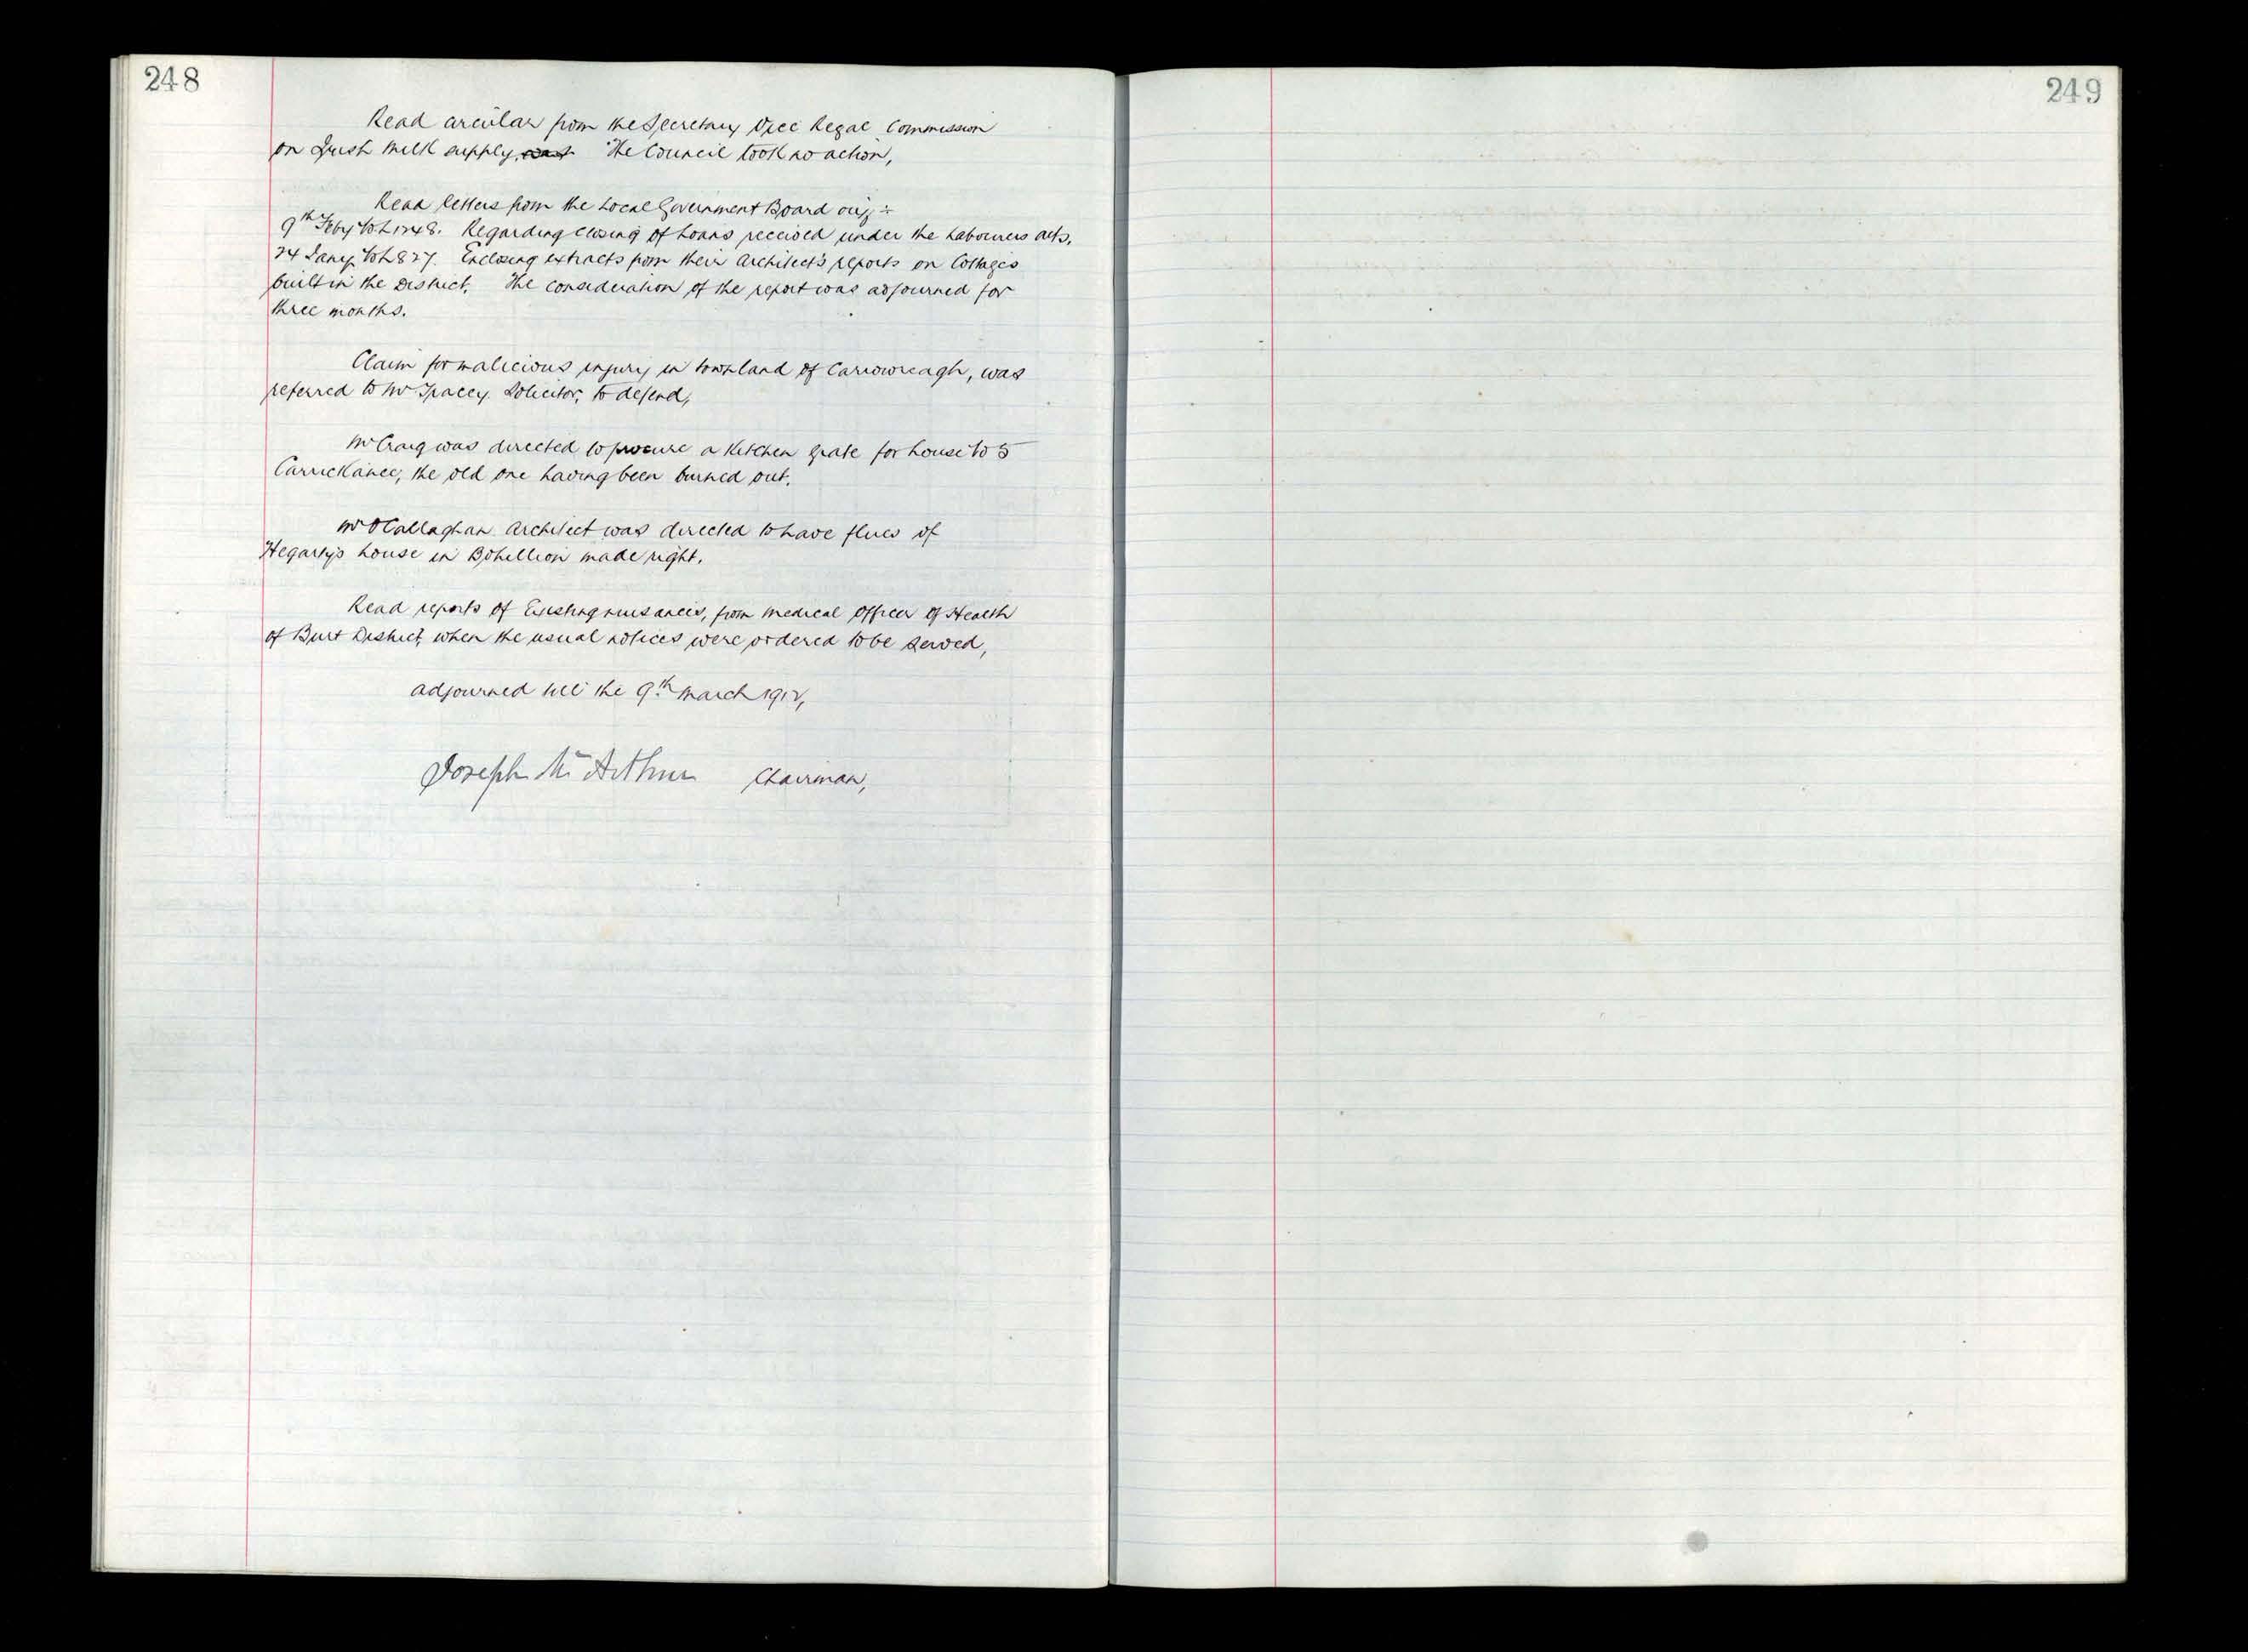 248
Read circular from the Secretary Vice Regal Commission
on Irish Milk supply, was The Council took no action,
Read letters from the Local Government Board viz;-
9th Feby No L1248. Regarding closing of Loans received under the Labourers acts.
24 Jany No L827. Enclosing extracts from their Architect's reports on Cottages
built in the District. The consideration of the report was adjourned for
three months.
Claim for malicious injury in townland of Carrowreagh, was
referred to Mr Tracey. Solicitor, to defend,
Mr Craig was directed to procure a Kitchen grate for house No 5
the old one having been burned out.
Mr O'Callaghan Architect was directed to have flues of
Hegarty's house in Bohillion made right.
Read reports of Existing nuisances, from Medical Officer of Health
of Burt District, when the usual notices were ordered to be served,
adjourned till the 9th March 1912,
Joseph McArthur Chairman,
249